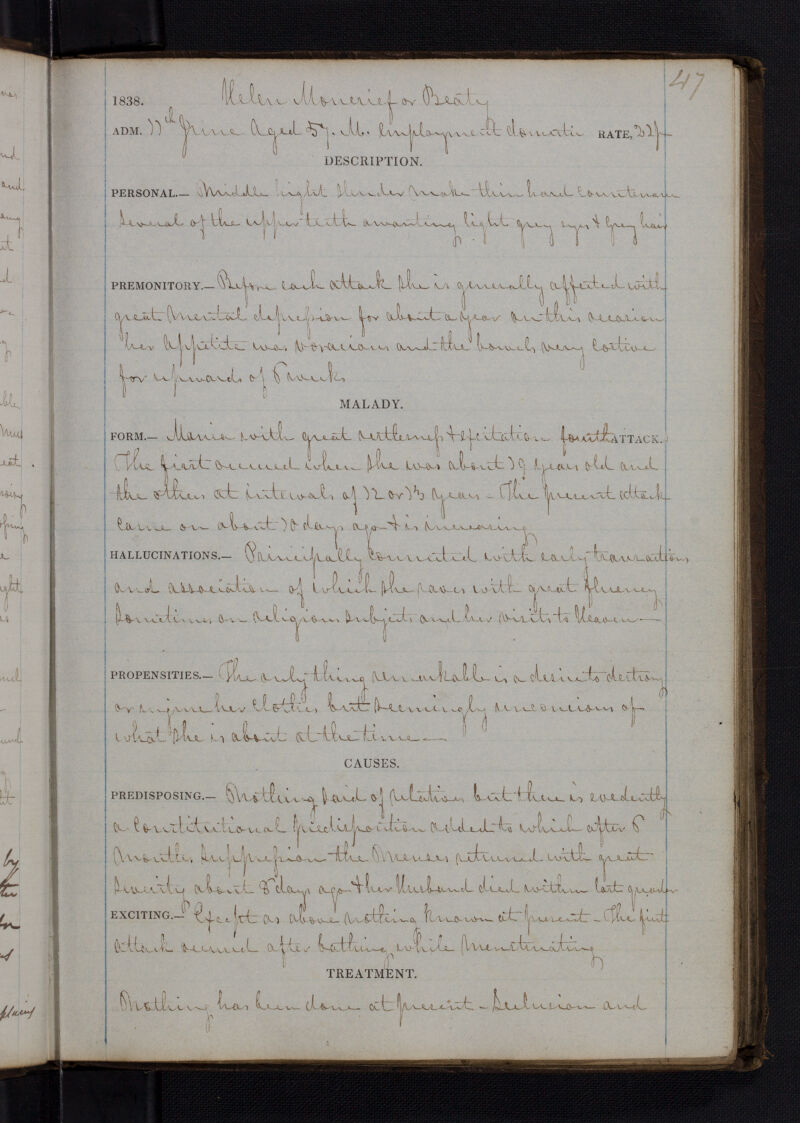 47
1838. Helen Moncrief or Beaty
ADM. 11th June Aged 57. M. Employment domestic RATE, £22/-
DESCRIPTION.
PERSONAL.— Middle hight slender make thin hard countenance
several of the upper teeth awanting light grey eyes & Grey hair
PREMONITORY.— Before each attack she is generally affected with
great mental depression for about a year on this occasion
her appetite was voracious and the bowels very costive
for upwards of 8 weeks
MALADY.
FORM.— Mania with great restlessness & excitation fourth ATTACK.
The first occurred when she was about 19 years old and
the others at intervals of 12 or 13 years – The present attack
came on about 10 days ago & is increasing
HALLUCINATIONS.— Principally connected with early transactions
and association of which she raves with great fluency
sometimes on religious subjects and her visits to Heaven —
PROPENSITIES.— The only thing remarkable is a desire to destroy
or injure her clothes but seemingly unconcious of
what she is about at the time —
CAUSES.
PREDISPOSING.— Nothing said of relations but there is evedently
a constitutional predisposition added to which after 8
months suppression the menses returned with great
severity about 8 days ago & her Husband died within last quarter
EXCITING.— Except as above nothing known at present – The first
attack occurred after bathing while menstruating
TREATMENT.
Nothing has been done at present – Seclusion and